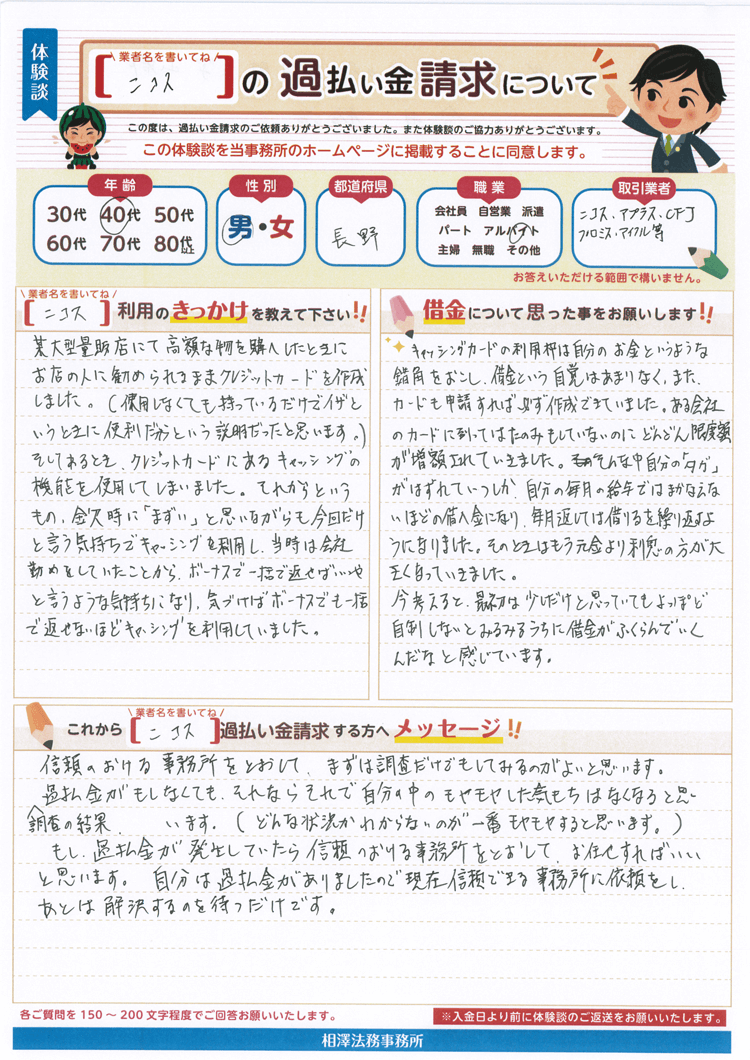 体験談
業者名を書いてね
【ニコス】の過払い金請求について
この度は、過払い金請求のご依頼ありがとうございました。また体験談のご協力ありがとうございます。
この体験談を当事務所のホームページに掲載することに同意します。
年齢
30代 40代 50代
60代 70代 80代以上
性別
男・女
都道府県
長野
職業
会社員 自営業 派遣
パート アルバイト
主婦 無職 その他
取引業者
ニコス、アプラス、CFJ
プロミス、アイフル等
お答えいただける範囲で構いません。
業者名を書いてね
【ニコス】利用のきっかけを教えて下さい!!
某大型量販店にて高額な物を購入したときに
お店の人に勧められるままクレジットカードを作成
しました。(使用しなくても持っているだけでイザと
いうときに便利だからという説明だったと思います。)
そしてあるとき、クレジットカードにあるキャッシングの
機能を使用してしまいました。それからという
もの、金欠時に「まずい」と思いながらも今回だけ
と言う気持ちでキャッシングを利用し、当時は会社
勤めをしていたことから、ボーナスで一括で返せばいいや
と言うような気持ちになり、気づけばボーナスでも一括
で返せないほどキャッシングを利用していました。
借金について思った事をお願いします!!
キャッシングカードの利用枠は自分のお金というような
錯角をおこし、借金という自覚はあまりなく、また、
カードも申請すれば必ず作成できていました。ある会社
のカードに到ってはたのみもしていないのにどんどん限度額
が増額されていきました。そんな中自分の「タガ」
がはずれていつしか自分の毎月の給与ではまかなえな
いほどの借入金になり、毎月返しては借りるを繰り返すよ
うになりました。そのときはもう元金より利息の方が大
きくなっていきました。
今考えると、最初は少しだけと思っていてもよっぽど
自制しないとみるみるうちに借金がふくらんでいく
んだなと感じています。
業者名を書いてね
これから【ニコス】過払い金請求する方へメッセージ!!
信頼のおける事務所をとおして、まずは調査だけでもしてみるのがよいと思います。
過払金がもしなくても、それならそれで自分の中のモヤモヤした気もちはなくなると思
調査の結果、 います。(どんな状況かわからないのが一番モヤモヤすると思います。)
もし、過払金が発生していたら信頼のおける事務所をとおして、お任せすればいい
と思います。自分は過払金がありましたので現在信頼できる事務所に依頼をし、
あとは解決するのを待つだけです。
各ご質問を150~200文字程度でご回答お願いいたします。
※入金日より前に体験談のご返送をお願いいたします。
相澤法務事務所